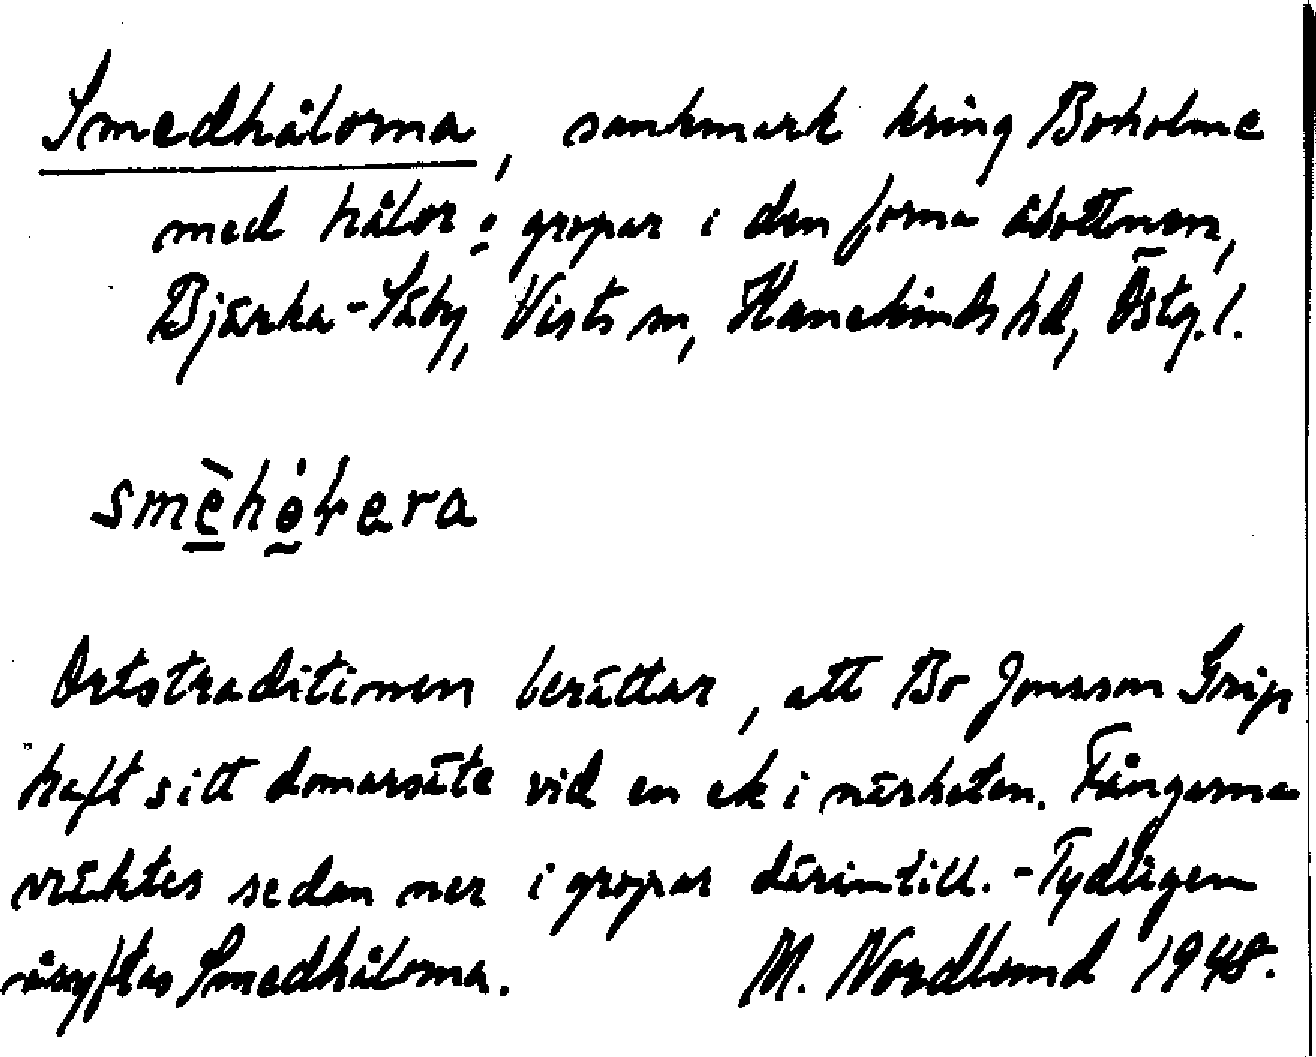 Smedhålorna, sankmark kring Boholme
med hålor o: gropar i den forna åbottnen,
Bjärka-Säby, Vists sn, Hanekinds hd, Östg.l.
smèhólera
Ortstraditionen berättar, att Bo Jonsson Grip
haft sitt domarsäte vid en ek i närheten. Fångarna
vräktes sedan ner i gropar därintill. - Tydligen
åsyftas Smedhålorna. M. Nordlund 1948.